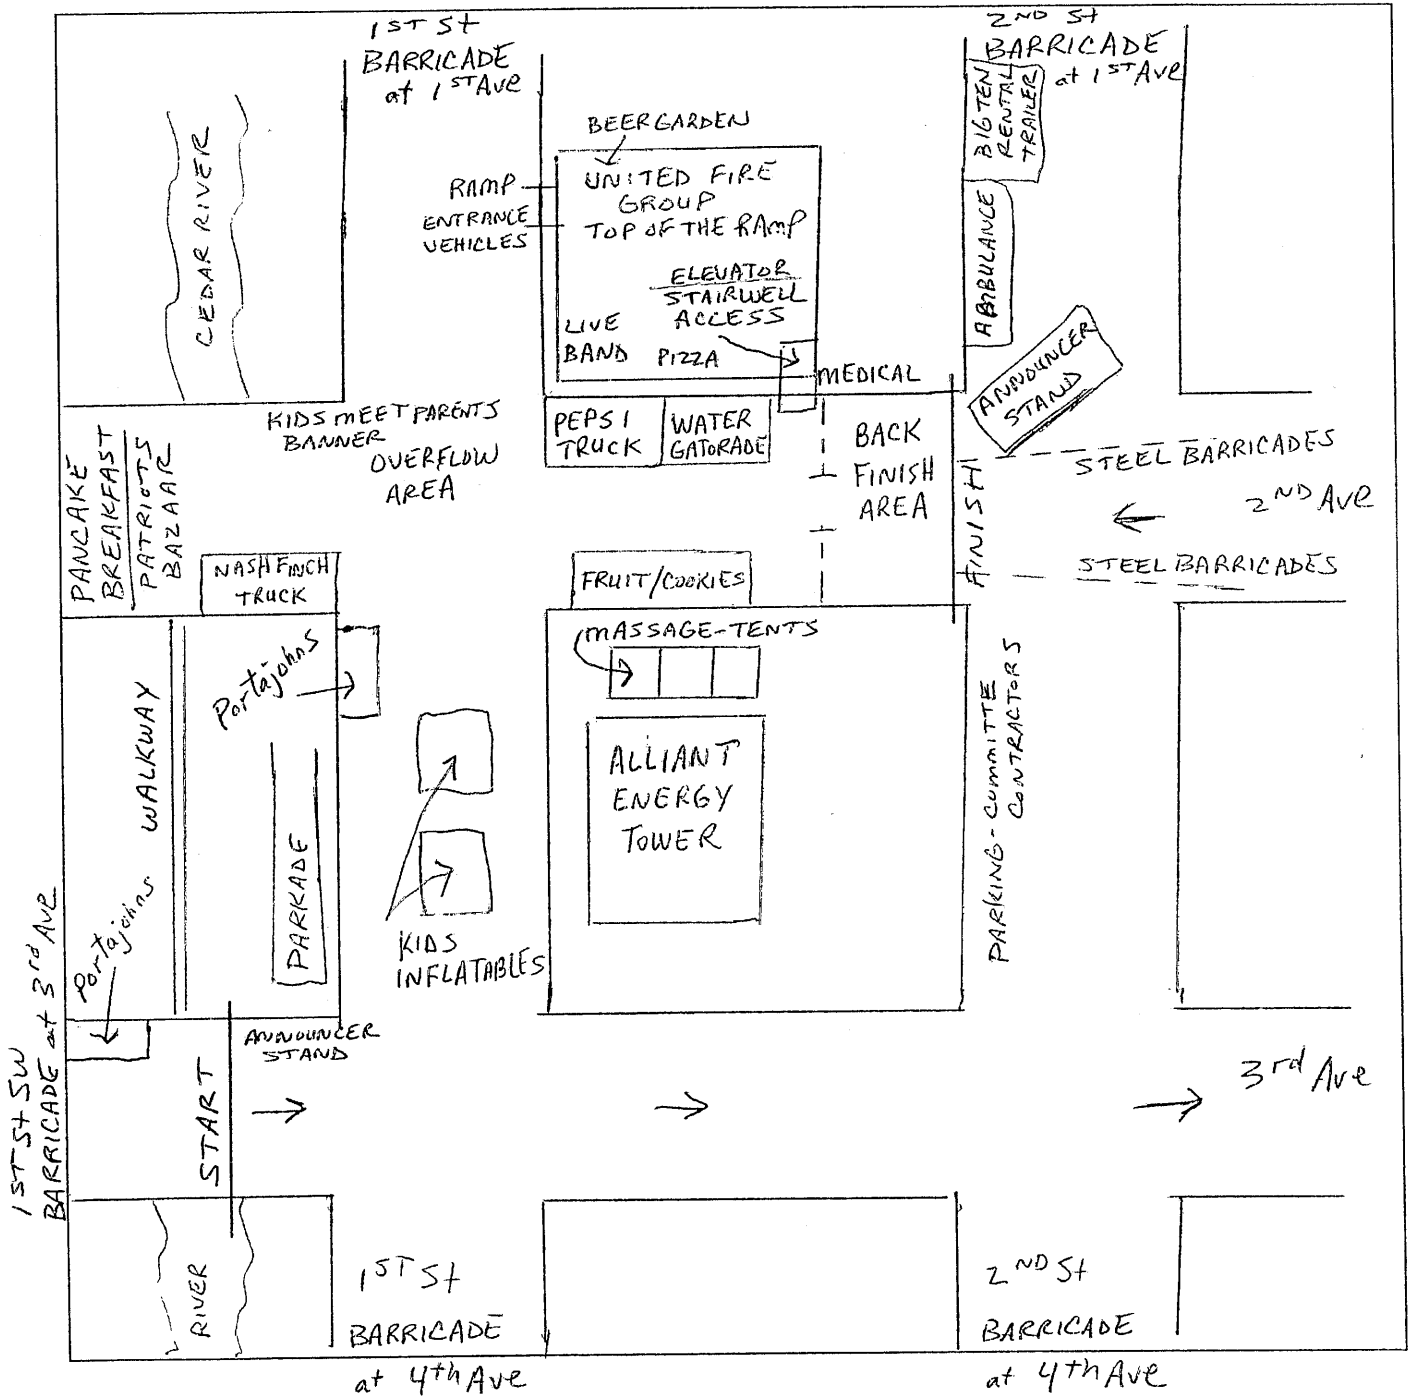 1ST St
BARRICADE
at 1ST Ave
2ND St
BARRICADE
at 1ST Ave
BIG TEN
RENTAL
TRAILER
BEER GARDEN
CEDAR RIVER
RAMP
ENTRANCE
VEHICLES
UNITED FIRE
GROUP
TOP OF THE RAMP
AMBULANCE
ELEVATOR
STAIRWELL
ACCESS
LIVE
BAND
PIZZA
MEDICAL
ANNOUNCER
STAND
KIDS MEET PARENTS
BANNER
OVERFLOW
AREA
PEPSI
TRUCK
WATER
GATORADE
BACK
FINISH
AREA
FINISH
STEEL BARRICADES
2ND Ave
STEEL BARRICADES
PANCAKE
BREAKFAST
PATRIOTS
BAZAAR
NASH FINCH
TRUCK
FRUIT/COOKIES
MASSAGE-TENTS
Portajohns
WALKWAY
PARKADE
ALLIANT
ENERGY
TOWER
PARKING-CUMMITTE
CONTRACTORS
KIDS
INFLATABLES
Portajohns
1ST St SW
BARRICADE at 3rd Ave
ANNOUNCER
STAND
START
3rd Ave
RIVER
1ST St
BARRICADE
at 4th Ave
2ND St
BARRICADE
at 4th Ave